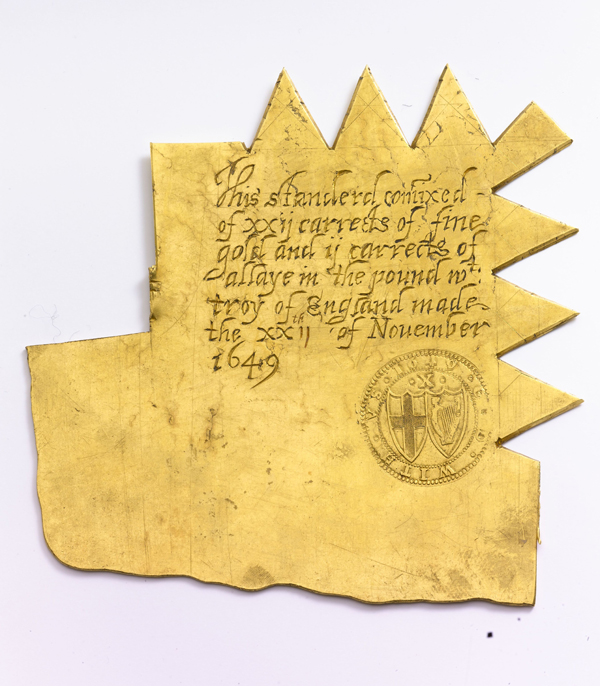 This standerd comixed
of xxij carrects of fine
gold and ij carrects of
allaye in the pound wt:
troy of England made
the xxij th of Nouember
1649